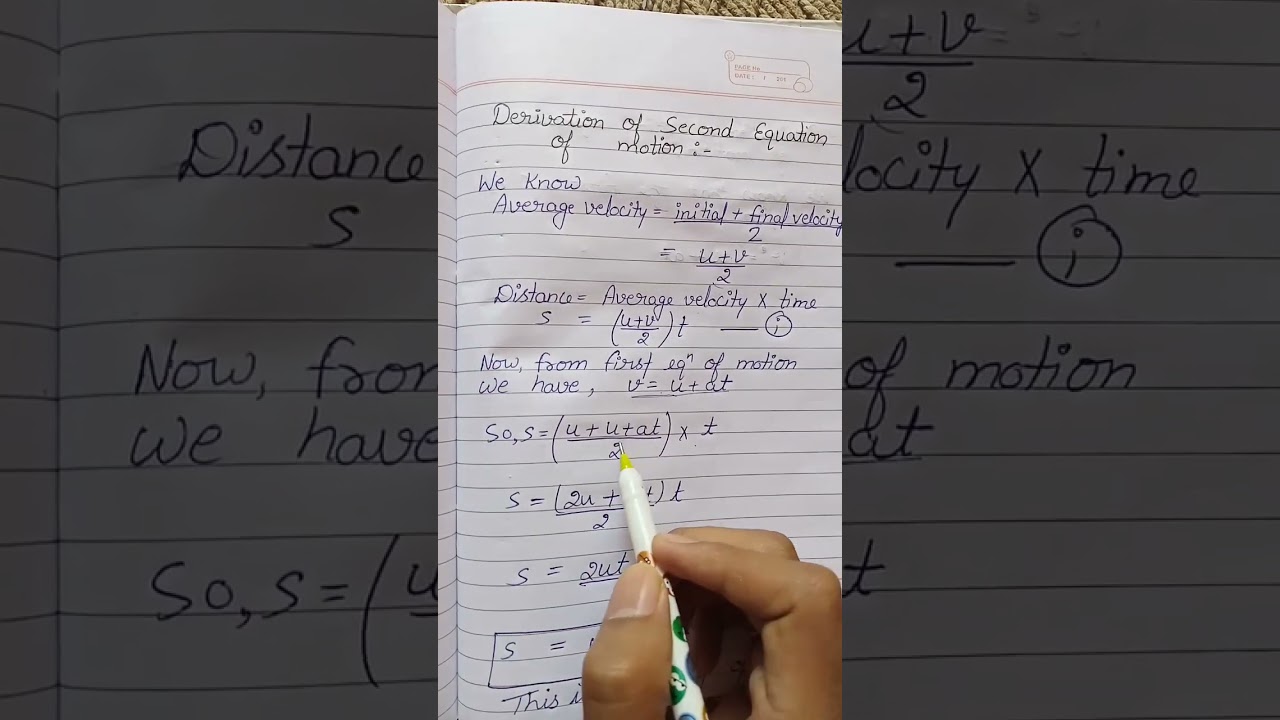 PAGE No.
DATE: / / 201
Derivation of Second Equation
of motion:-
We Know
Average velocity = initial + final velocity
2
= u+v
2
Distance = Average velocity X time
s = (u+v/2) t —— (i)
Now, from first eqⁿ of motion
We have, v = u + at
So, s = (u + u + at/2) × t
s = (2u + t) t
2
s = 2ut
s =
This i